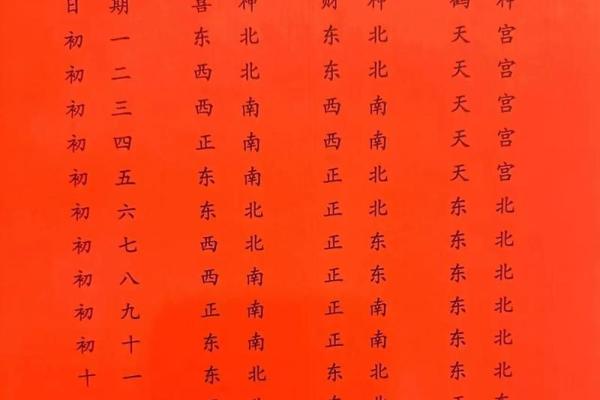 日期 喜神 财神 鹤神
初一 东北 东北 天宫
初二 西北 东北 天宫
初三 西南 西南 天宫
初四 正南 西南 天宫
初五 东南 正北 天宫
初六 东北 正北 东北
初七 西北 正东 东北
初八 西南 正东 东北
初九 正南 正南 东北
初十 东南 正南 东北
十一 东北 东北 东北